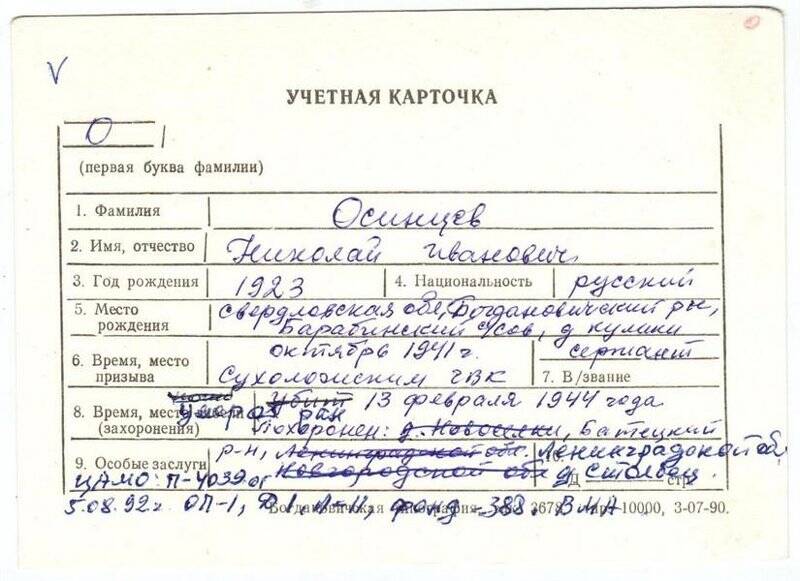 V
УЧЕТНАЯ КАРТОЧКА
О
(первая буква фамилии)
1. Фамилия Осинцев
2. Имя, отчество Николай Иванович
3. Год рождения 1923 4. Национальность русский
5. Место рождения Свердловская обл, Богдановичский рн,
Барабинский с/сов, д кулики
6. Время, место призыва октябрь 1941 г.
Сухоложским ГВК
7. В/звание сержант
8. Время, место (захоронения) Убит 13 февраля 1944 года
умер от ран
Похоронен: д. Новоселки, Батецкий
9. Особые заслуги р-н, Ленинградской обл. Ленинградской об
Новгородской обл д Столбец
ЦАМО: П-4039 от
5.08.92г. ОП-1, Д 1, Л-11, фонд-388. ВМА
Богдановичская типография, 3678, 10000, 3-07-90.